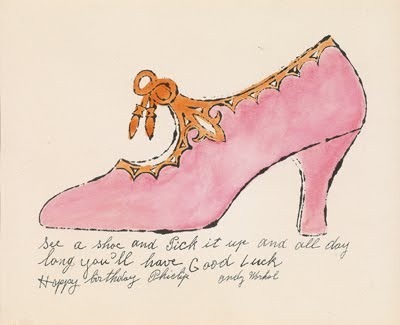 See a shoe and Pick it up and all day
long you'll have Good Luck
Happy birthday Philip Andy Warhol